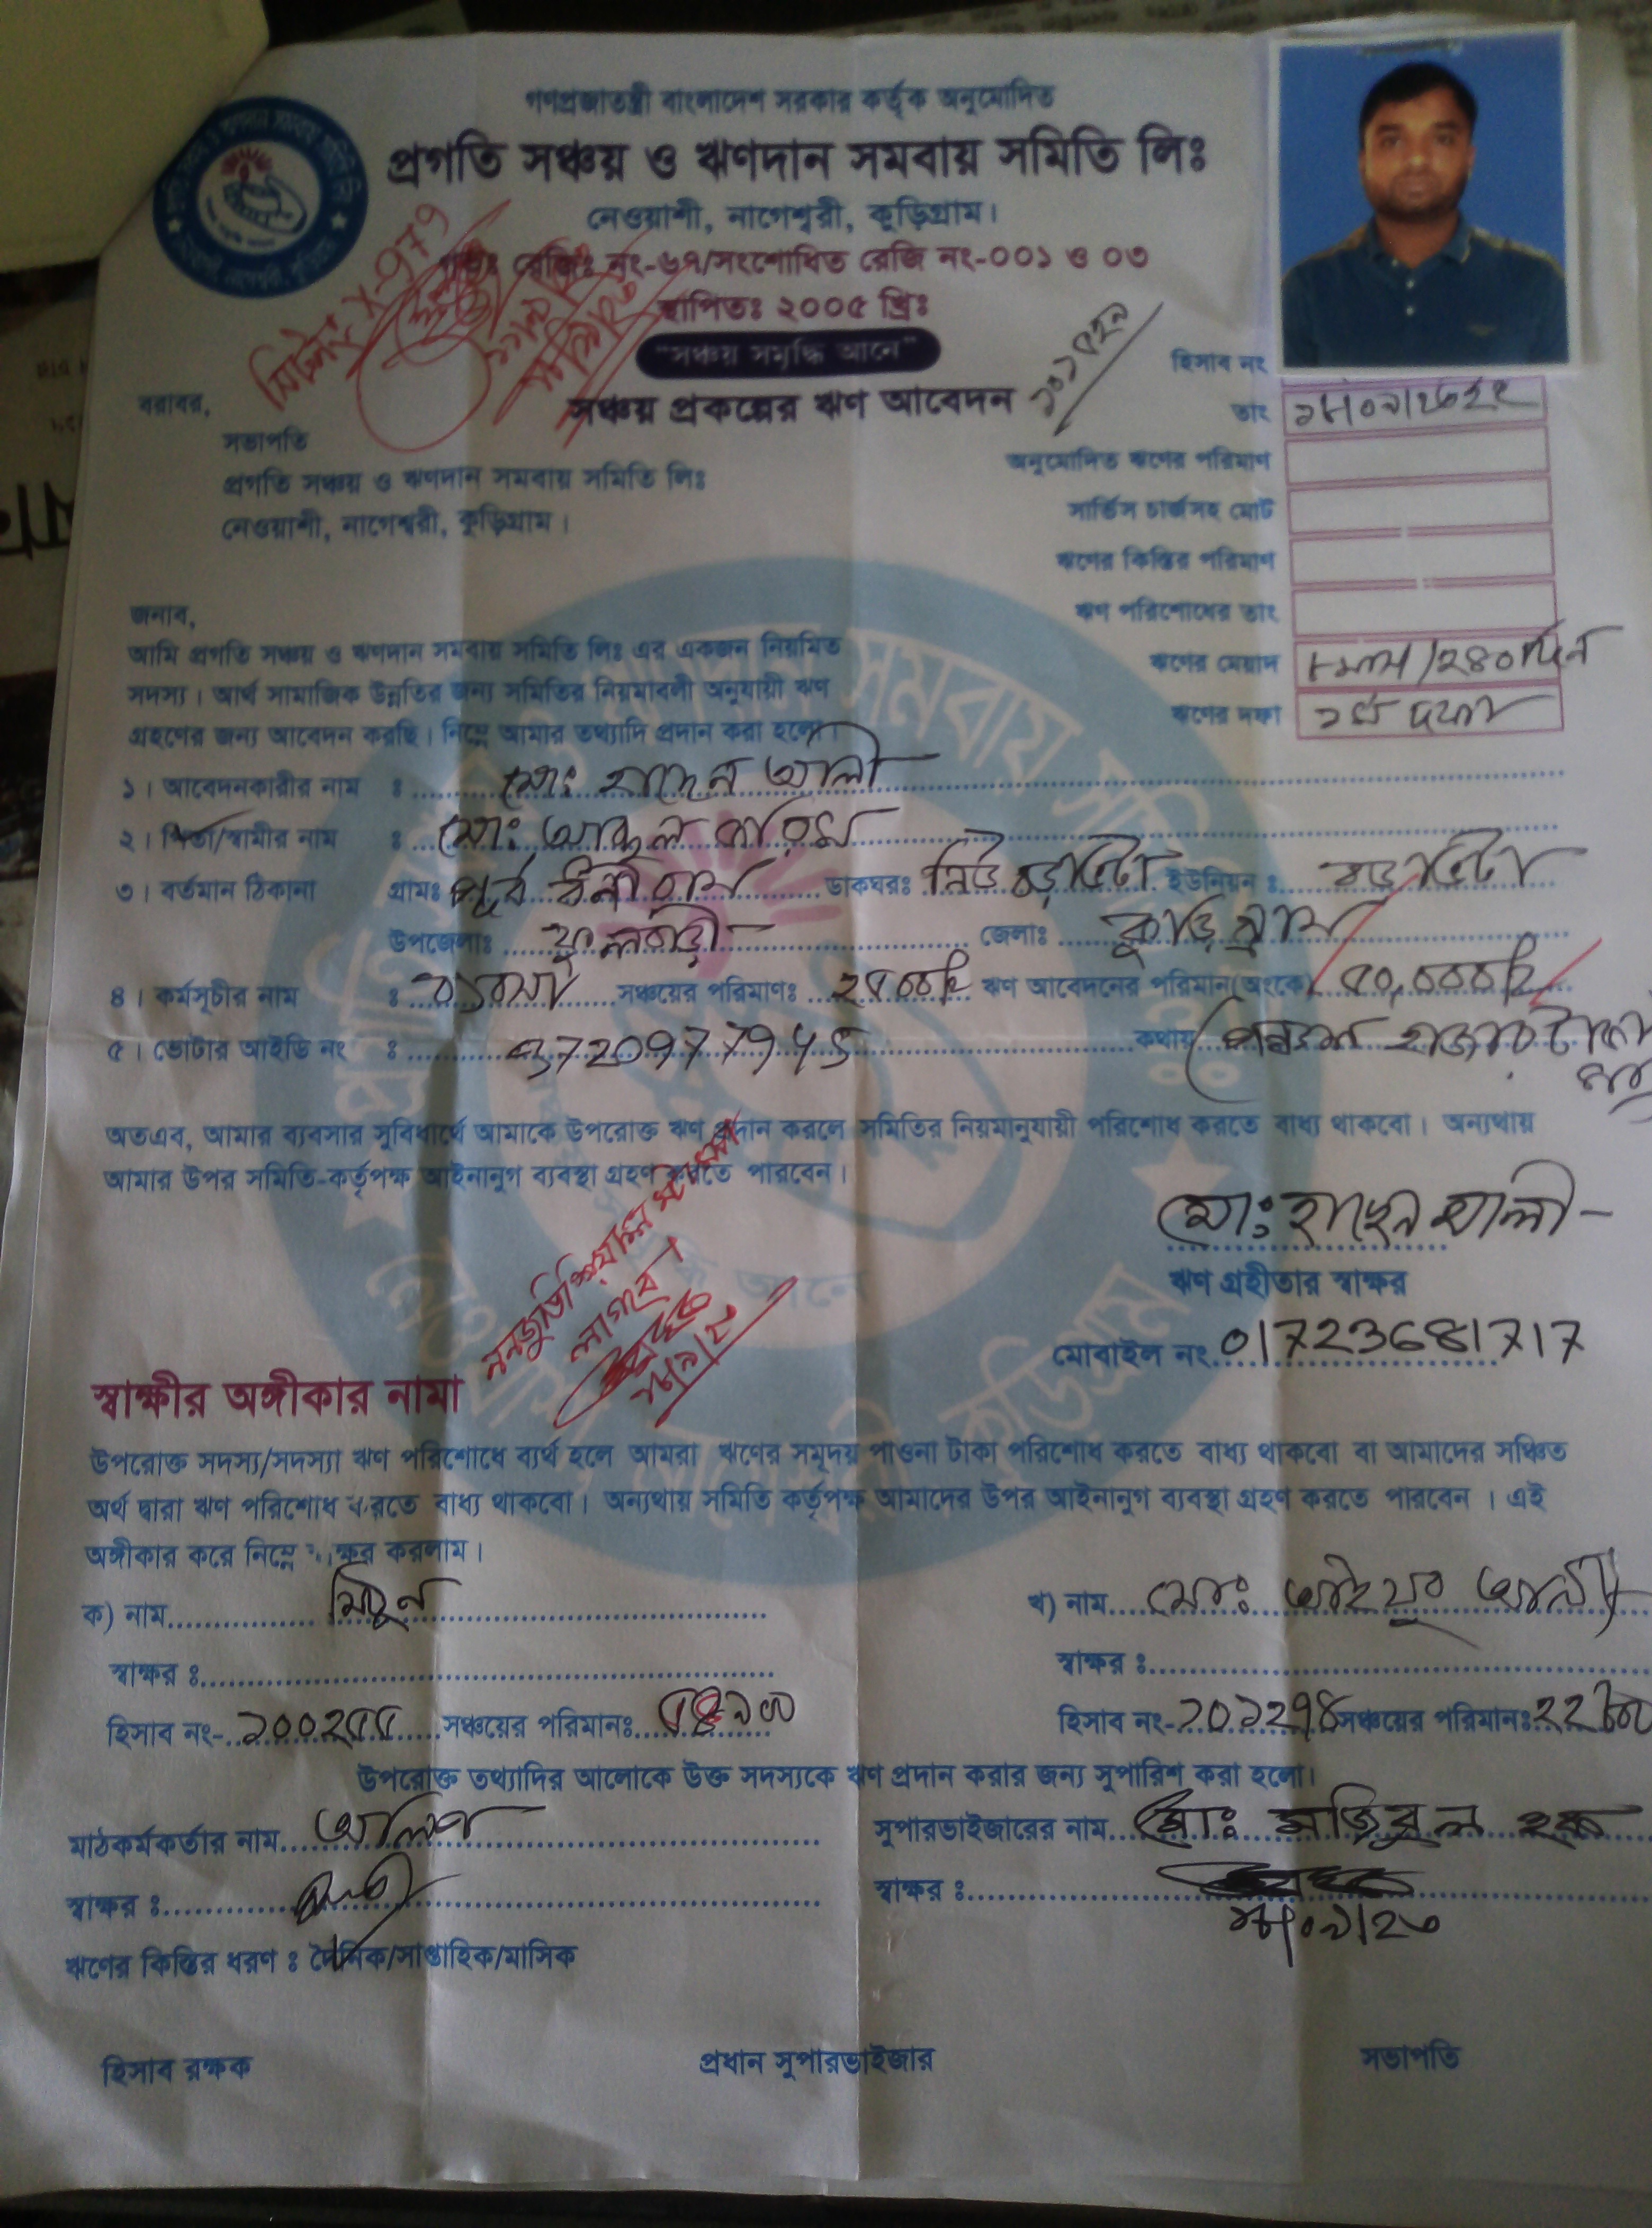 গণপ্রজাতন্ত্রী বাংলাদেশ সরকার কর্তৃক অনুমোদিত
প্রগতি সঞ্চয় ও ঋণদান সমবায় সমিতি লিঃ
নেওয়াশী, নাগেশ্বরী, কুড়িগ্রাম।
রেজিঃ নং-৬৭/সংশোধিত রেজি নং-০০১ ও ০৩
স্থাপিতঃ ২০০৫ খ্রিঃ
"সঞ্চয় সমৃদ্ধি আনে"
সঞ্চয় প্রকল্পের ঋণ আবেদন
হিসাব নং
তাং
অনুমোদিত ঋণের পরিমাণ
সার্ভিস চার্জসহ মোট
ঋণের কিস্তির পরিমাণ
ঋণ পরিশোধের তাং
ঋণের মেয়াদ ৮মাস/২৪০দিন
ঋণের দফা
বরাবর,
সভাপতি
প্রগতি সঞ্চয় ও ঋণদান সমবায় সমিতি লিঃ
নেওয়াশী, নাগেশ্বরী, কুড়িগ্রাম।
জনাব,
আমি প্রগতি সঞ্চয় ও ঋণদান সমবায় সমিতি লিঃ এর একজন নিয়মিত
সদস্য। আর্থ সামাজিক উন্নতির জন্য সমিতির নিয়মাবলী অনুযায়ী ঋণ
গ্রহণের জন্য আবেদন করছি। নিম্নে আমার তথ্যাদি প্রদান করা হলো।
১। আবেদনকারীর নাম ঃ মোঃ হাছেন আলী
২। পিতা/স্বামীর নাম ঃ মোঃ করিম
৩। বর্তমান ঠিকানা গ্রামঃ পূর্ব ধনীরাম ডাকঘরঃ বড়ভিটা ইউনিয়ন ঃ বড়ভিটা
উপজেলাঃ ফুলবাড়ী জেলাঃ কুড়িগ্রাম
৪। কর্মসূচীর নাম ঃ ব্যবসা সঞ্চয়ের পরিমাণঃ ২৫০০/= ঋণ আবেদনের পরিমান(অংকে) ৫০,০০০/=
৫। ভোটার আইডি নং ঃ কথায় (পঞ্চাশ হাজার টাকা
অতএব, আমার ব্যবসার সুবিধার্থে আমাকে উপরোক্ত ঋণ প্রদান করলে সমিতির নিয়মানুযায়ী পরিশোধ করতে বাধ্য থাকবো। অন্যথায়
আমার উপর সমিতি-কর্তৃপক্ষ আইনানুগ ব্যবস্থা গ্রহণ করতে পারবেন।
মোঃ হাছেন আলী
ঋণ গ্রহীতার স্বাক্ষর
মোবাইল নং 01723681717
লাগবে।
স্বাক্ষীর অঙ্গীকার নামা
উপরোক্ত সদস্য/সদস্যা ঋণ পরিশোধে ব্যর্থ হলে আমরা ঋণের সমূদয় পাওনা টাকা পরিশোধ করতে বাধ্য থাকবো বা আমাদের সঞ্চিত
অর্থ দ্বারা ঋণ পরিশোধ করতে বাধ্য থাকবো। অন্যথায় সমিতি কর্তৃপক্ষ আমাদের উপর আইনানুগ ব্যবস্থা গ্রহণ করতে পারবেন । এই
অঙ্গীকার করে নিম্নে স্বাক্ষর করলাম।
ক) নাম মিঠুন খ) নাম মোঃ আইয়ুব আলী
স্বাক্ষর ঃ স্বাক্ষর ঃ
হিসাব নং- ১০০২৫৫ সঞ্চয়ের পরিমানঃ হিসাব নং- ১০১২৭৪ সঞ্চয়ের পরিমানঃ
উপরোক্ত তথ্যাদির আলোকে উক্ত সদস্যকে ঋণ প্রদান করার জন্য সুপারিশ করা হলো।
মাঠকর্মকর্তার নাম সুপারভাইজারের নাম মোঃ হক
স্বাক্ষর ঃ স্বাক্ষর ঃ
ঋণের কিস্তির ধরণ ঃ দৈনিক/সাপ্তাহিক/মাসিক
হিসাব রক্ষক প্রধান সুপারভাইজার সভাপতি